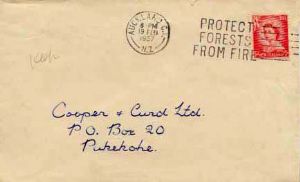 AUCKLAND C.1
6-PM
19 FEB
1957
N.Z.
PROTECT
FORESTS
FROM FIRE
Cooper & Curd Ltd.
P.O. Box 20
Pukekohe.